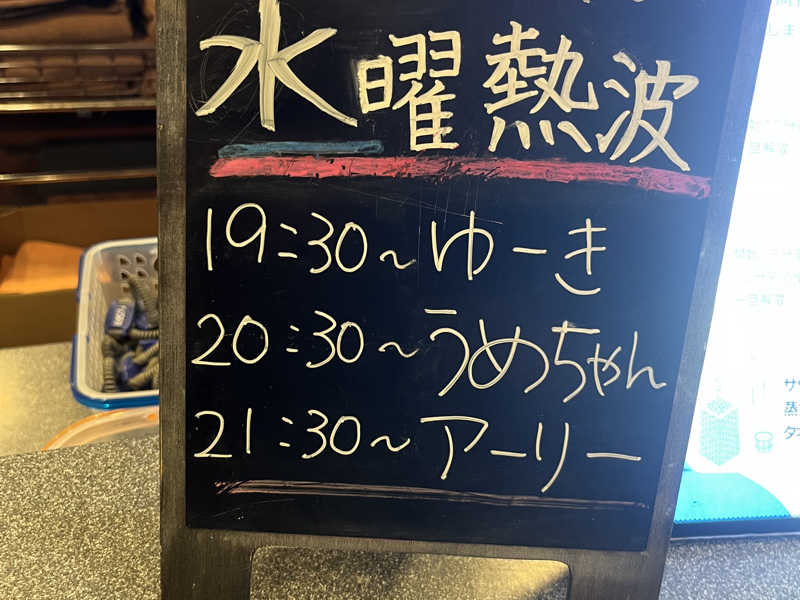 水曜熱波
19:30～ゆーき
20:30～うめちゃん
21:30～アーリー